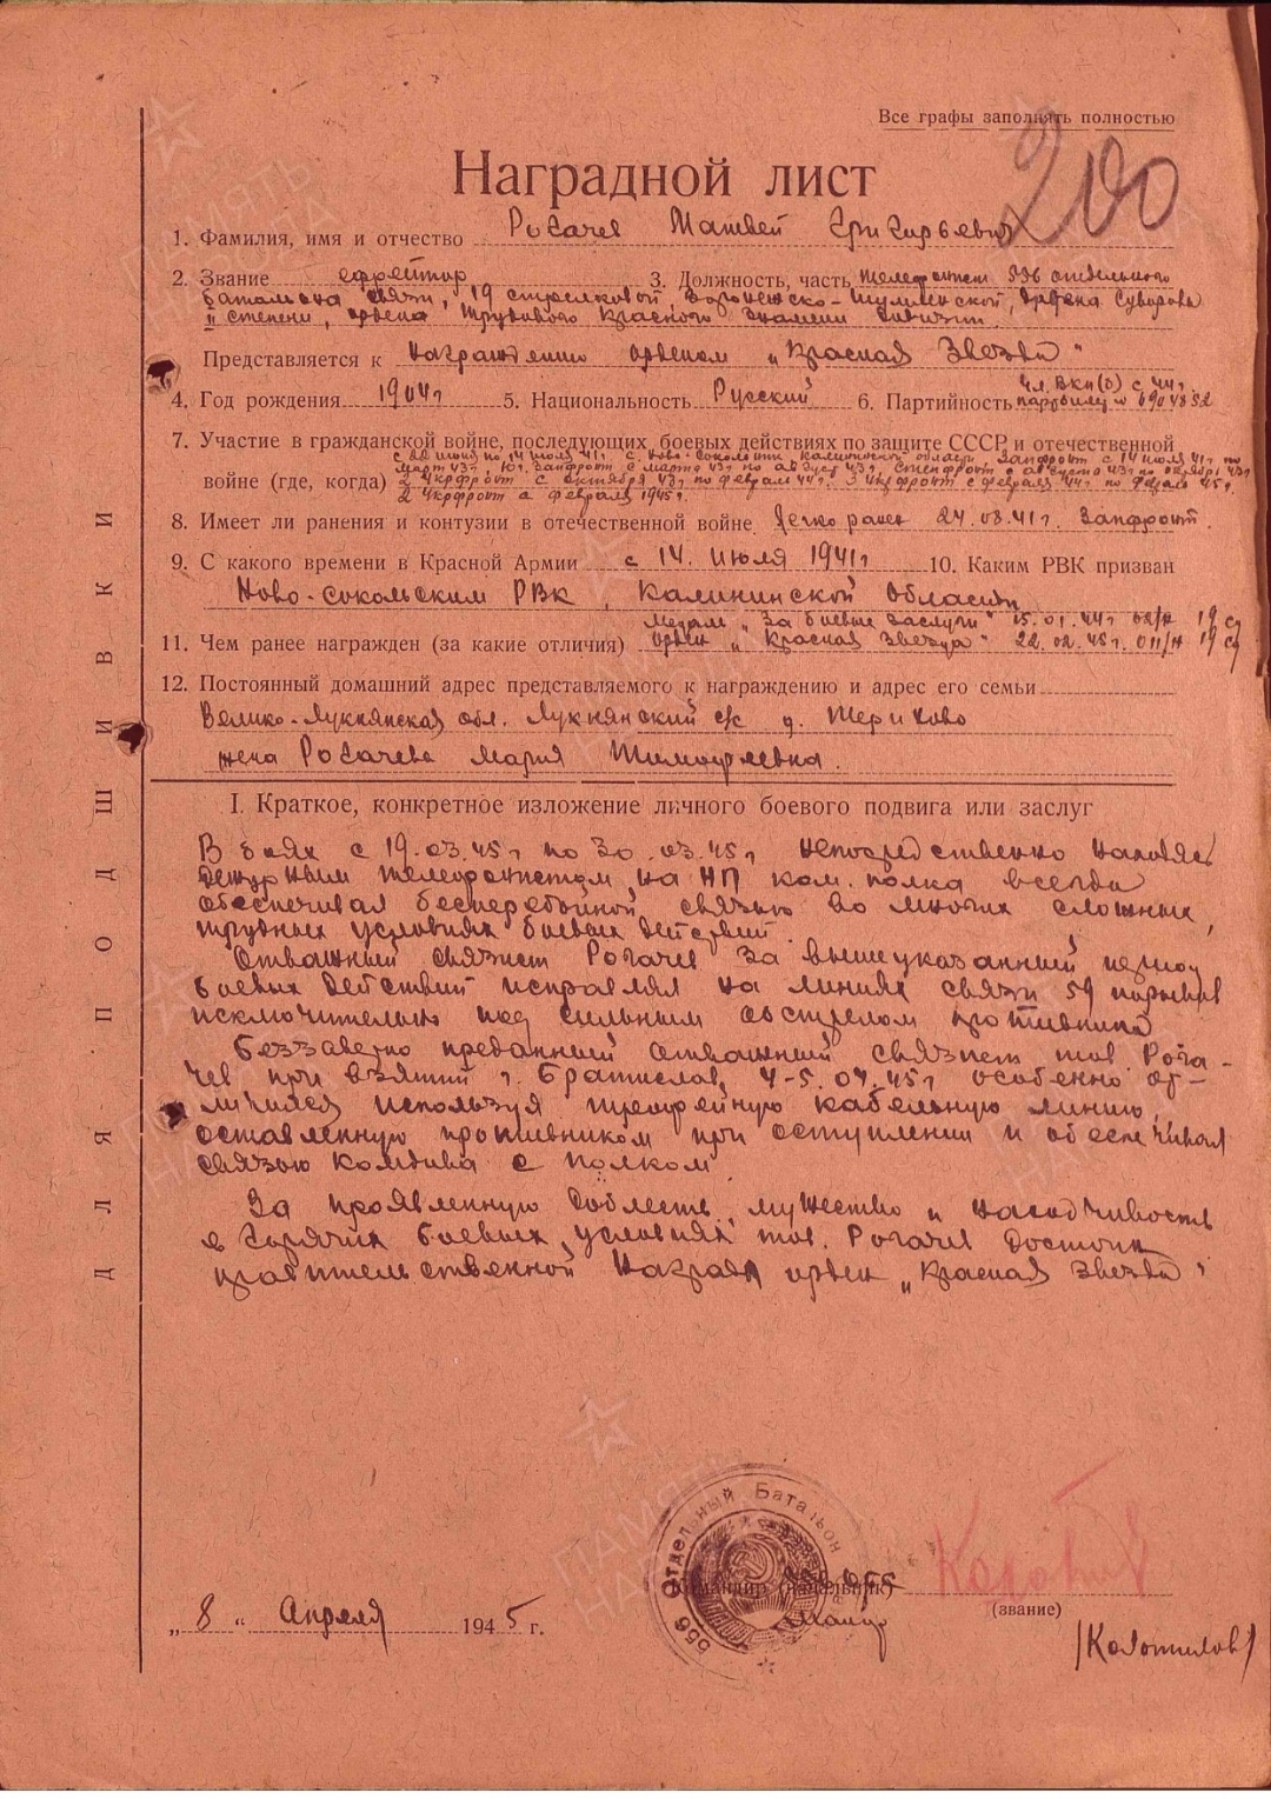 Все графы заполнять полностью
200
Наградной лист
1. Фамилия, имя и отчество Рогачев Матвей Григорьевич
2. Звание ефрейтор 3. Должность, часть телефонист 556 отдельного
батальона связи, 19 стрелковой, Воронежско-Шумленской, ордена Суворова
II степени, ордена Трудового Красного Знамени дивизии.
Представляется к награждению орденом „Красная Звезда"
4. Год рождения 1904г 5. Национальность Русский 6. Партийность чл. ВКП(б) с 44г.
партбилет № 6904852
7. Участие в гражданской войне, последующих боевых действиях по защите СССР и отечественной
войне (где, когда) с 22 июня по 14 июля 41г. с. Ново-Сокольники Калининской области, Запфронт с 14 июля 41г. по
март 43г., Юг. Запфронт с марта 43г по август 43г, Степфронт с августа 43г. по октябрь 43г
2 Укрфронт с октября 43г по февраль 44г. 3 Укрфронт с февраля 44г. по февраль 45г.
2 Укрфронт с февраля 1945г.
8. Имеет ли ранения и контузии в отечественной войне Легко ранен 24.08.41г. Запфронт.
9. С какого времени в Красной Армии с 14. Июля 1941г 10. Каким РВК призван
Ново-сокольским РВК, Калининской области
медаль „За боевые заслуги" 15.01.44г 02/н 19 сд
11. Чем ранее награжден (за какие отличия) орден „Красная Звезда" 22.02.45г. 011/н 19 сд
12. Постоянный домашний адрес представляемого к награждению и адрес его семьи
Велико-Лукнянская обл. Лукнянский с/с д. Териково
жена Рогачева Мария Тимофеевна.
I. Краткое, конкретное изложение личного боевого подвига или заслуг
В боях с 19.03.45г по 30.03.45г непосредственно находясь
дежурным телефонистом на НП ком. полка всегда
обеспечивал бесперебойной связью во многих сложных,
трудных условиях боевых действий.
Отважный связист Рогачев за вышеуказанный период
боевых действий исправлял на линиях связи 59 порывов
исключительно под сильным обстрелом противника
Беззаветно преданный отважный связист тов. Рога-
чев при взятии г. Братислав, 4-5.04.45г особенно от-
личился используя трофейную кабельную линию,
оставленную противником при отступлении и обеспечивал
связью комдива с полком
За проявленную доблесть, мужество и находчивость
в горячих боевых условиях тов. Рогачев достоин
правительственной награды орден „Красная Звезда".
556 Отдельный Батальон
Командир (начальник)
Майор
(звание)
/Колотилов/
„8" Апреля 1945 г.
ДЛЯ ПОДШИВКИ
ПАМЯТЬ НАРОДА